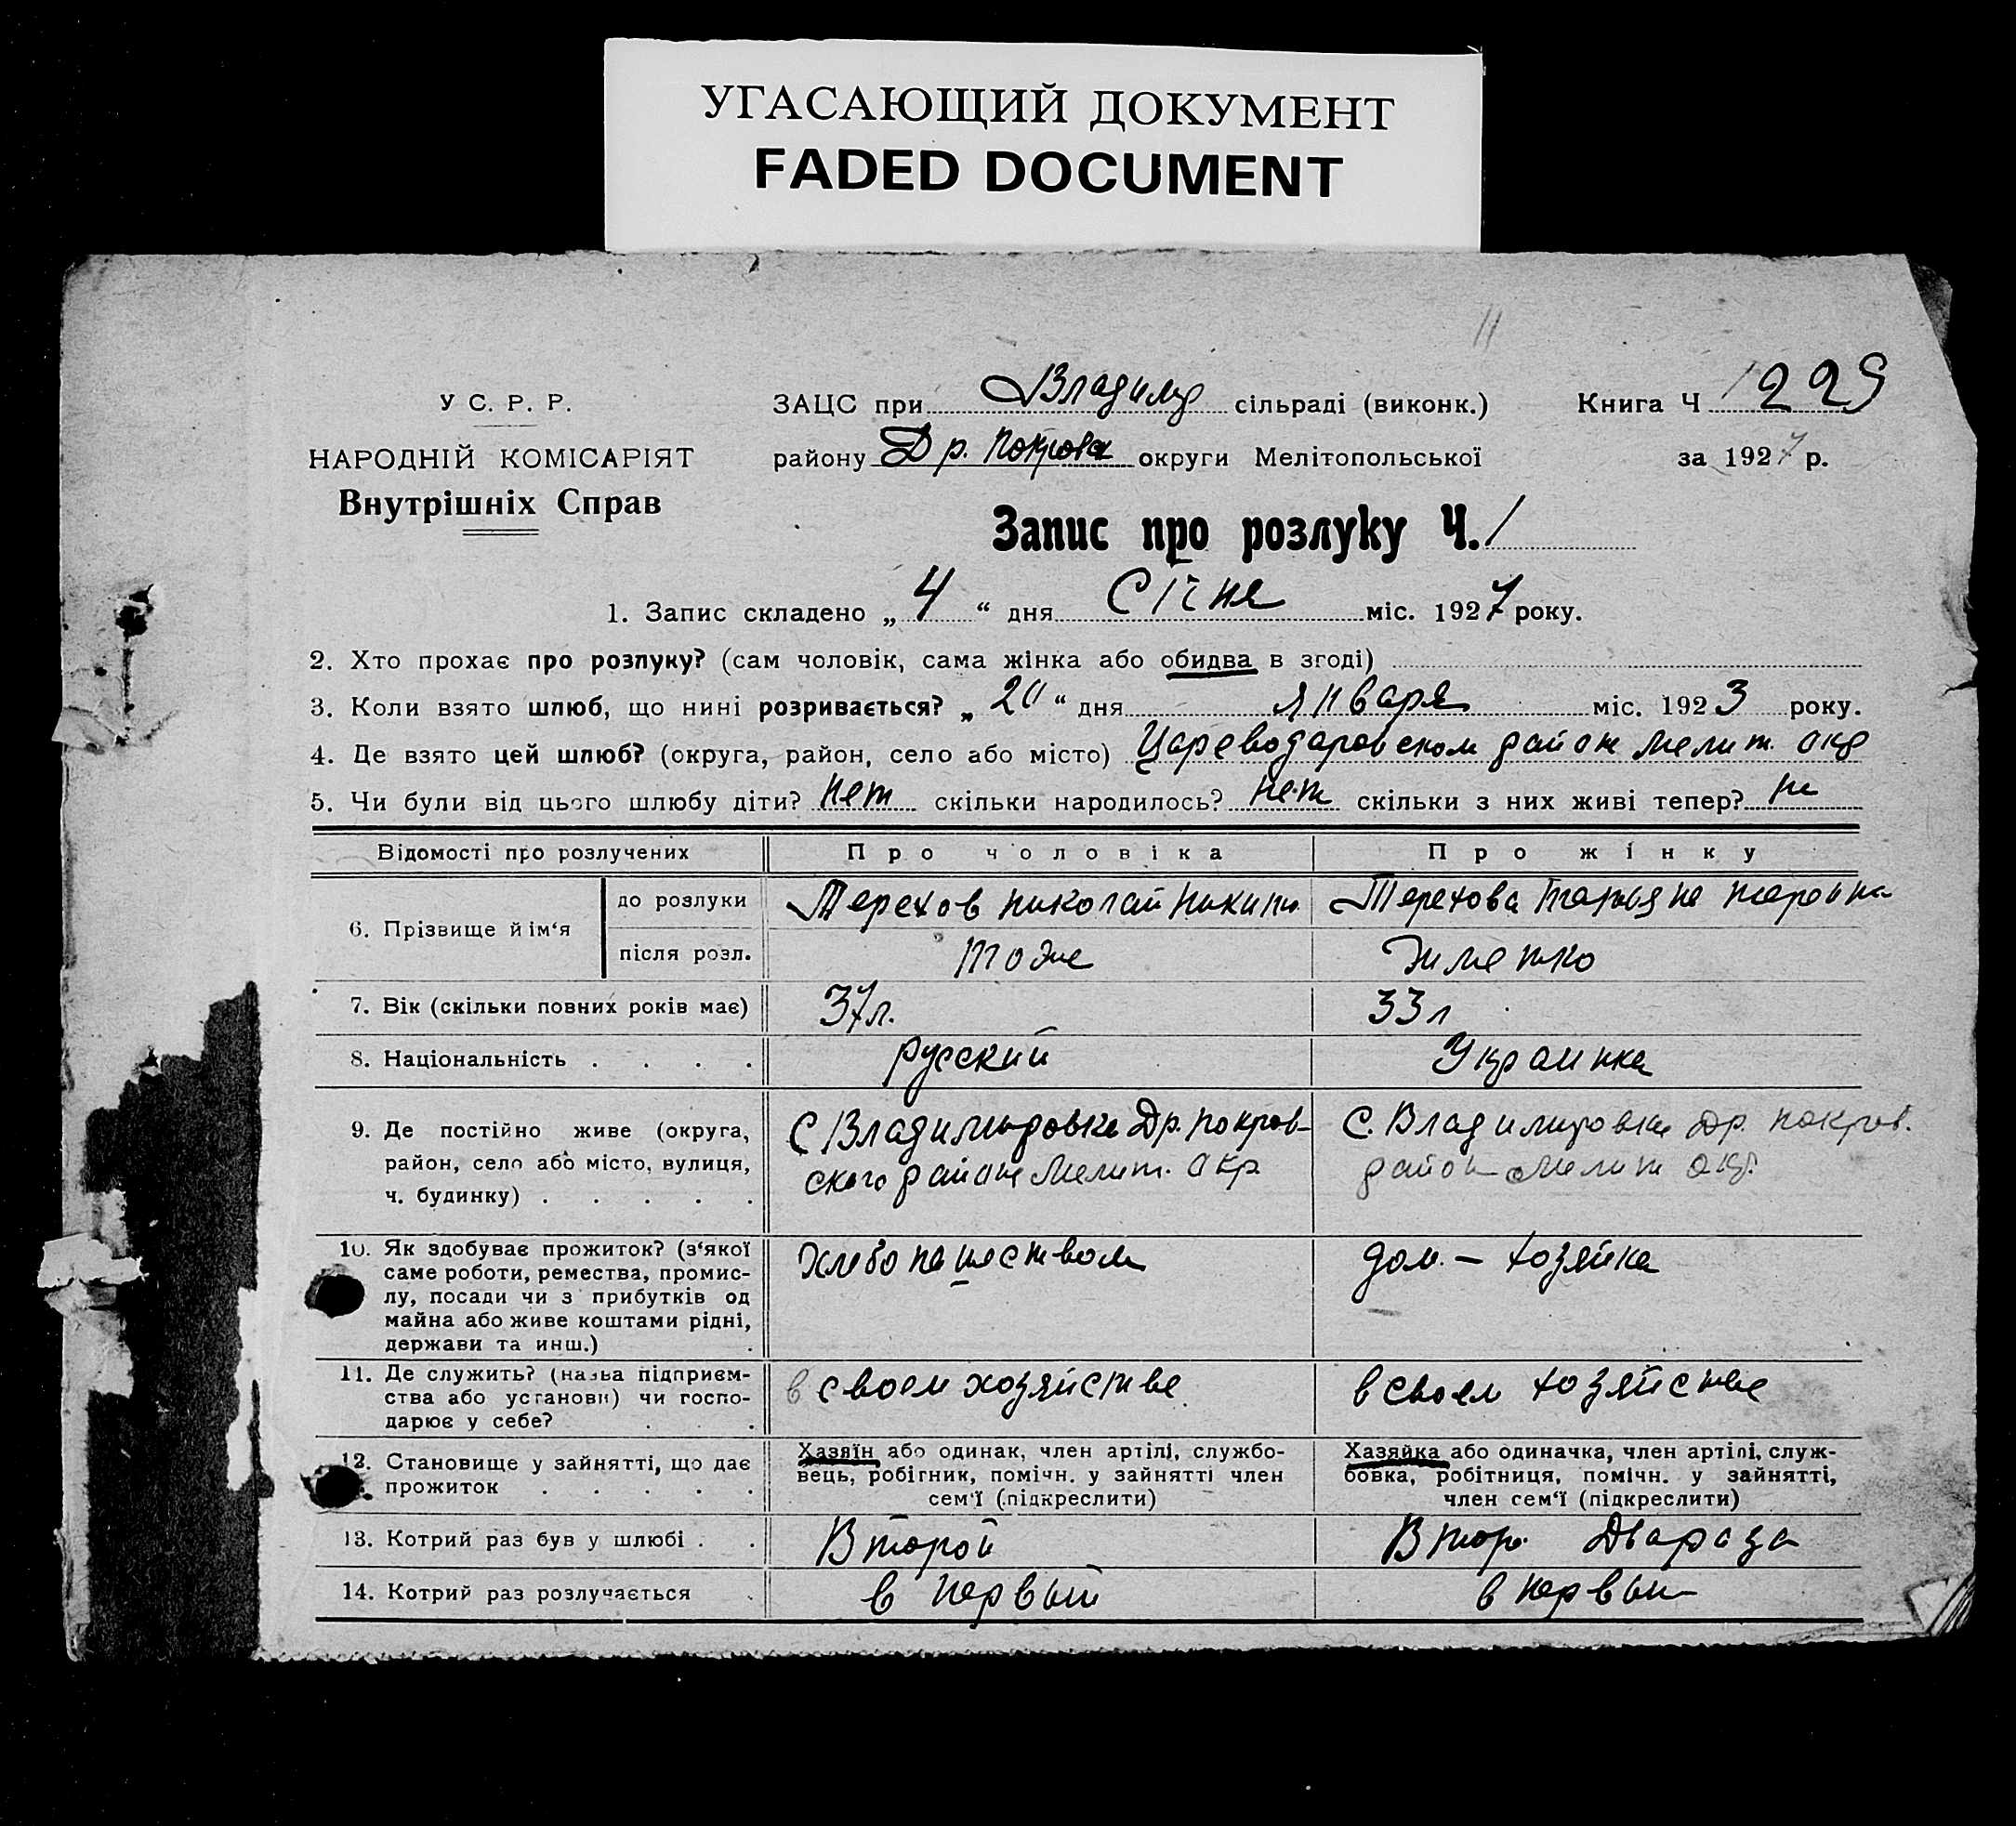 УГАСАЮЩИЙ ДОКУМЕНТ
FADED DOCUMENT
У С. Р. Р.
НАРОДНІЙ КОМІСАРІЯТ
Внутрішніх Справ
ЗАЦС при Владимр сільраді (виконк.)
району Др. Покров округи Мелітопольської
Книга Ч 229
за 1927 р.
Запис про розлуку Ч. 1
1. Запис складено „ 4 “ дня Січня міс. 1927 року.
2. Хто прохає про розлуку? (сам чоловік, сама жінка або обидва в згоді)
3. Коли взято шлюб, що нині розривається? „ 20 “ дня января міс. 1923 року.
4. Де взято цей шлюб? (округа, район, село або місто) Цареводаровском район Мелит. окр
5. Чи були від цього шлюбу діти? нет скільки народилось? нет скільки з них живі тепер? не
Відомості про розлучених Про чоловіка Про жінку
6. Прізвище й ім‘я
до розлуки Терехов Николай Никит. Терехова Татьяна
після розл. тоже
7. Вік (скільки повних років має) 37 л. 33 л
8. Національність . . . . русский Украинка
9. Де постійно живе (округа,
район, село або місто, вулиця,
ч. будинку) . . . . .
С Владимировка Др. Покров-
ского района Мелит. Окр
С. Владимировка Др. Покров.
район Мелит окр.
10. Як здобуває прожиток? (з‘якої
саме роботи, ремества, промис-
лу, посади чи з прибутків од
майна або живе коштами рідні,
держави та инш.) .
Хлебопашеством
дом. — хозяйка
11. Де служить? (назва підприєм-
ства або установи) чи госпо-
дарює у себе? . .
в своем хозяйстве
в своем хозяйстве
12. Становище у зайнятті, що дає
прожиток . . . . .
Хазяїн або одинак, член артілі, службо-
вець, робігник, помічн. у зайнятті член
сем‘ї (підкреслити)
Хазяйка або одиначка, член артілі, служ-
бовка, робітниця, помічн. у зайнятті,
член сем‘ї (підкреслити)
13. Котрий раз був у шлюбі . . Второй Втор. Два раза
14. Котрий раз розлучається . в первый в первый